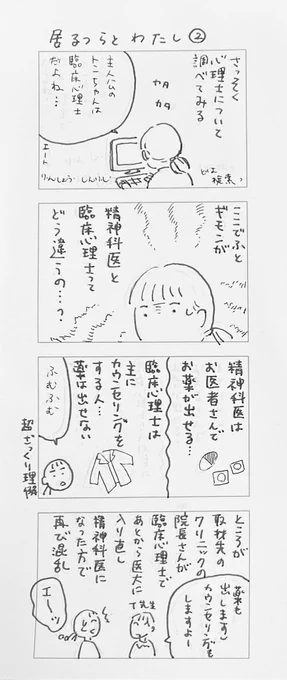 居るつらとわたし②
さっそく
心理士について
調べてみる
ヒミ
検索っ
カタ
カタ
主人公の
トンちゃんは
臨床心理士
だよね…
エート
りんしょうしんりし
ここでふと
ギモンが
精神科医と
臨床心理士って
どう違うの…？
精神科医は
お医者さんで
お薬が出せる…
臨床心理士は
主に
カウンセリングを
する人…
薬は出せない
ふむふむ
超ざっくり理解
ところが
取材先の
クリニックの
院長さんが
臨床心理士で
あとから医大に
入り直し
精神科医に
なった方で
再び混乱
薬も
出しますし
カウンセリングも
しますよー
T先生
エーッ